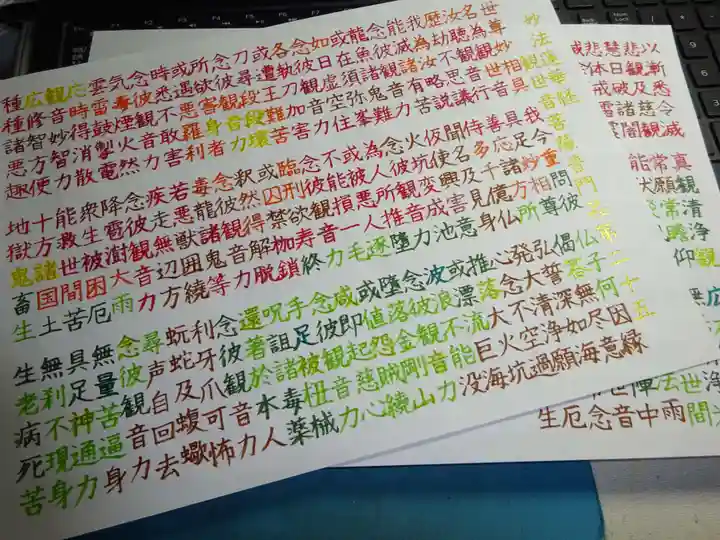 妙法蓮華経観世音菩薩普門品第二十五
世尊妙相具 我今重問彼 仏子何因縁
名為観世音 具足妙相尊 偈答無尽意
汝聴観音行 善応諸方所 弘誓深如海
歴劫不思議 侍多千億仏 発大清浄願
我為汝略説 聞名及見身 心念不空過
能滅諸有苦 仮使興害意 推落大火坑
念彼観音力 火坑変成池 或漂流巨海
龍魚諸鬼難 念彼観音力 波浪不能没
或在須弥峯 為人所推堕 念彼観音力
如日虚空住 或被悪人逐 堕落金剛山
念彼観音力 不能損一毛 或値怨賊繞
各執刀加害 念彼観音力 咸即起慈心
或遭王難苦 臨刑欲寿終 念彼観音力
刀尋段段壊 或囚禁枷鎖 手足被杻械
念彼観音力 釈然得解脱 呪詛諸毒薬
所欲害身者 念彼観音力 還著於本人
或遇悪羅刹 毒龍諸鬼等 念彼観音力
時悉不敢害 若悪獣囲繞 利牙爪可怖
念彼観音力 疾走無辺方 蚖蛇及蝮蠍
気毒煙火然 念彼観音力 尋声自回去
雲雷鼓掣電 降雹澍大雨 念彼観音力
応時得消散 衆生被困厄 無量苦逼身
観音妙智力 能救世間苦 具足神通力
広修智方便 十方諸国土 無刹不現身
種種諸悪趣 地獄鬼畜生 生老病死苦
以漸悉令滅 真観清浄観